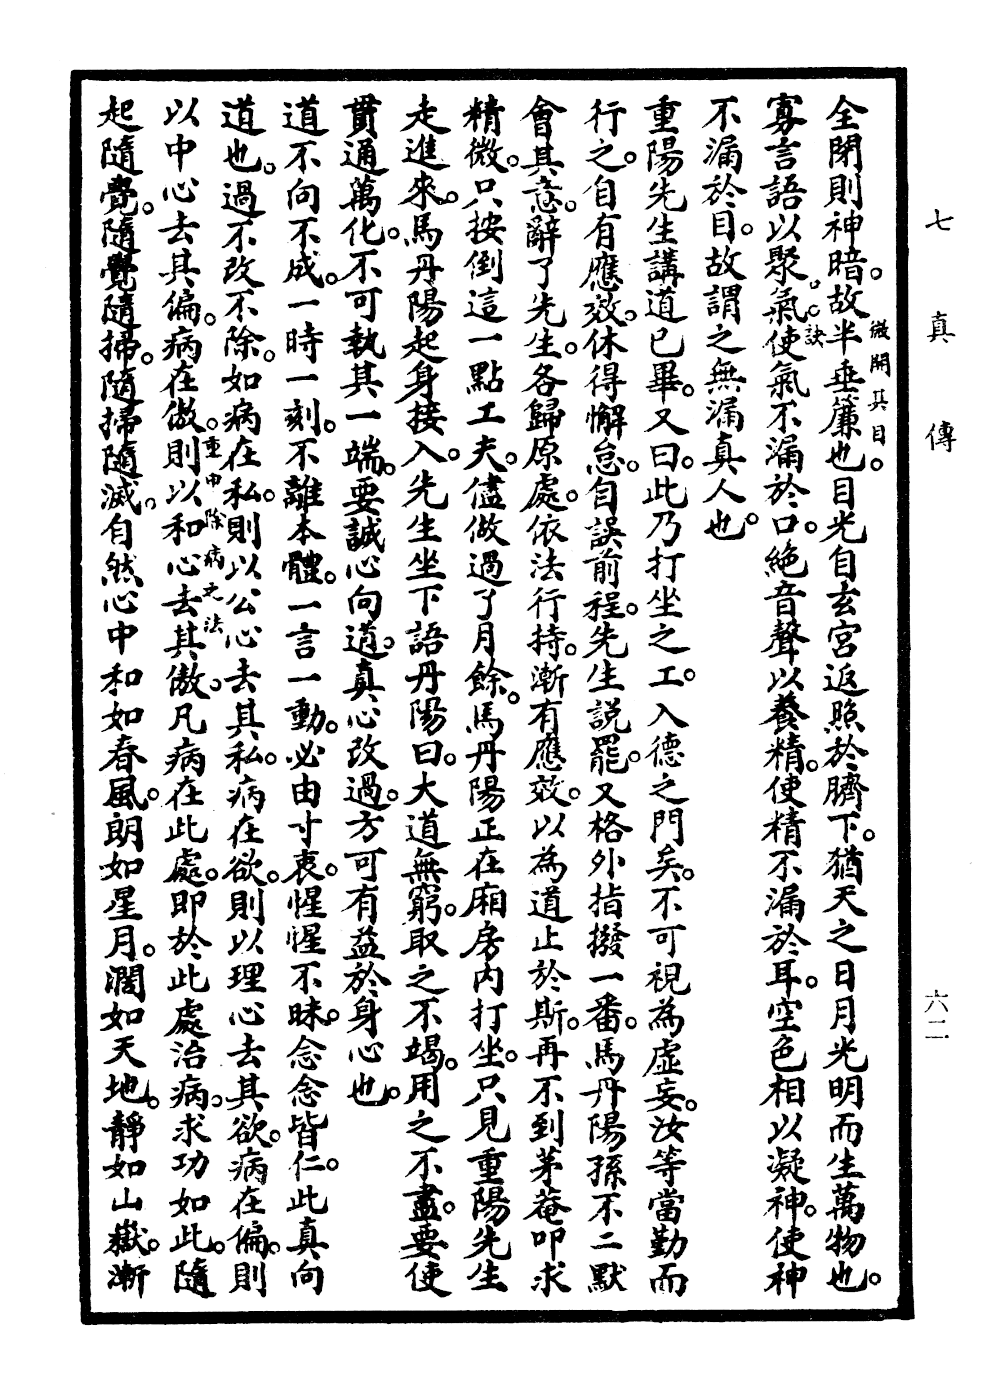 七真傳
六二
全閉則神暗。故半垂簾也。目光自玄宮返照於臍下。猶天之日月光明而生萬物也。
微開其目。
寡言語以聚氣。使氣不漏於口。絕音聲以養精。使精不漏於耳。空色相以凝神。使神
訣
不漏於目。故謂之無漏真人也。
重陽先生講道已畢。又曰。此乃打坐之工。入德之門矣。不可視為虛妄。汝等當勤而
行之。自有應效。休得懈怠。自誤前程。先生説罷。又格外指撥一番。馬丹陽孫不二默
會其意。辭了先生。各歸原處。依法行持。漸有應效。以為道止於斯。再不到茅菴叩求
精微。只按倒這一點工夫。儘做過了月餘。馬丹陽正在廂房內打坐。只見重陽先生
走進來。馬丹陽起身接入。先生坐下語丹陽曰。大道無窮。取之不竭。用之不盡。要使
貫通萬化。不可執其一端。要誠心向道。真心改過。方可有益於身心也。
道不向不成。一時一刻。不離本體。一言一動。必由寸衷。惺惺不昧。念念皆仁。此真向
道也。過不改不除。如病在私。則以公心去其私。病在欲。則以理心去其欲。病在偏。則
以中心去其偏。病在傲。則以和心去其傲。凡病在此處。即於此處治病。求功如此。隨
重申除病之法
起隨覺。隨覺隨掃。隨掃隨滅。自然心中和如春風。朗如星月。濶如天地。靜如山嶽。漸